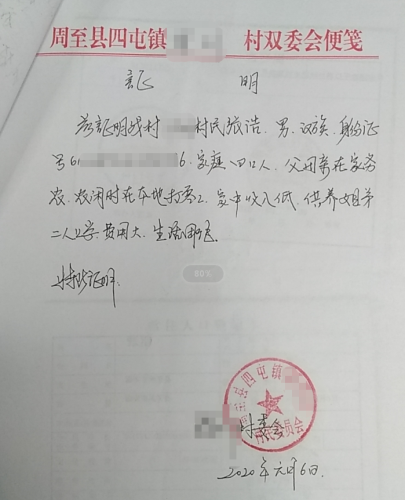 周至县四屯镇 村双委会便笺
证 明
兹证明我村 村民张浩、男、汉族、身份证
号6 6、家庭四口人,父母亲在家务
农、农闲时在本地打零工,家中收入低、供养姐弟
二人上学、费用大、生活困难。
特此证明
周至县四屯镇 村民委员会
村委会
2020年元月6日